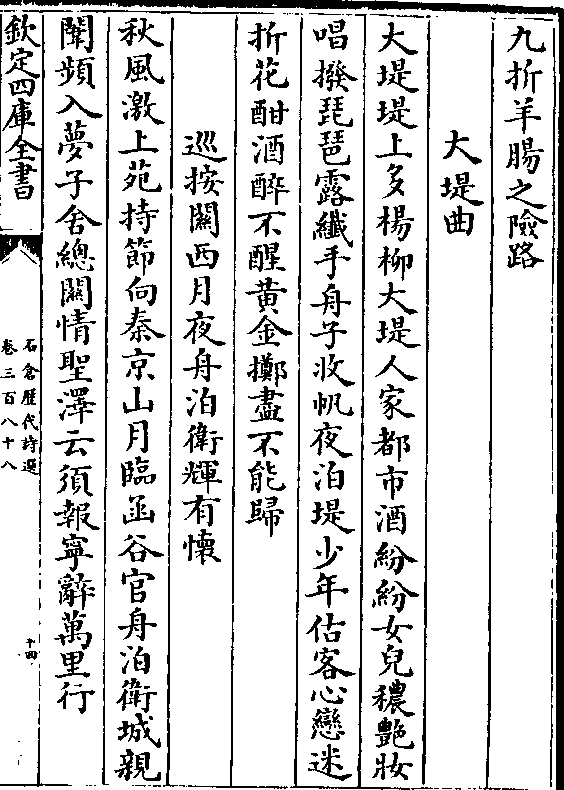 九折羊腸之險路
大堤曲
大堤堤上多楊柳大堤人家都市酒紛紛女兒穠艷妝
唱撥琵琶露纖手舟子收帆夜泊堤少年估客心戀迷
折花酣酒醉不醒黄金擲盡不能歸
巡按關西月夜舟泊衛輝有懷
秋風激上苑持節向秦京山月臨函谷官舟泊衛城親
闈頻入夢子舍總關情聖澤云須報寧辭萬里行
欽定四庫全書
石倉歷代詩選
卷三百八十八
十四